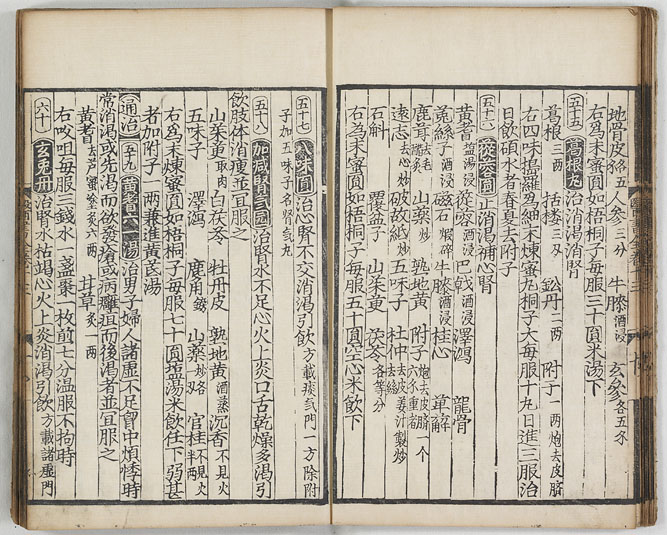 地骨皮各五人參三分 牛膝酒浸 玄參各五分
右爲末蜜圓如梧桐子每服三十圓米湯下
五十五 葛根丸 治消渴消腎
葛根三兩 括蔞三兩 鈆丹二兩 附子一兩炮去皮臍
右四味搗羅爲細末煉蜜丸桐子大每服十丸日進三服治
日飲碩水者春夏去附子
五十六 蓯蓉圓 正消渴補心腎
黃耆鹽湯浸 蓯蓉酒浸 巴戟酒浸 澤瀉 龍骨
菟絲子酒浸 磁石煆碎 牛膝酒浸 桂心 萆薢
鹿茸去毛酥炙 山藥炒 熟地黃 附子炮去皮臍一个六分重者
遠志去心炒 破故紙炒 五味子 杜仲去皮姜汁製炒去絲
石斛 覆盆子 山茱萸 茯苓各等分
右爲末蜜圓如梧桐子每服五十圓空心米飲下
五十七 八味圓 治心腎不交消渴引飲方載痰氣門一方除附
子加五味子名腎氣丸
五十八 加減腎氣圓 治腎水不足心火上炎口舌乾燥多渴引
飲肢体消瘦並宜服之
山茱萸取肉 白茯苓 牡丹皮 熟地黃酒蒸 沉香不見火
五味子 澤瀉 鹿角鎊 山藥炒各 官桂不見火半兩
右爲末煉蜜圓如梧桐子每服七十圓塩湯米飲任下弱甚
者加附子一兩兼進黃芪湯
通治 五十九 黃耆六一湯 治男子婦人諸虛不足胷中煩悸時
常消渴或先渴而欲發瘡或病癰疽而後渴者並宜服之
黃耆去芦蜜塗炙六兩 甘草炙一兩
右㕮咀每服三錢水一盞棗一枚煎七分温服不拘時
六十 玄兎丹 治腎水枯竭心火上炎消渴引飲方載諸虛門